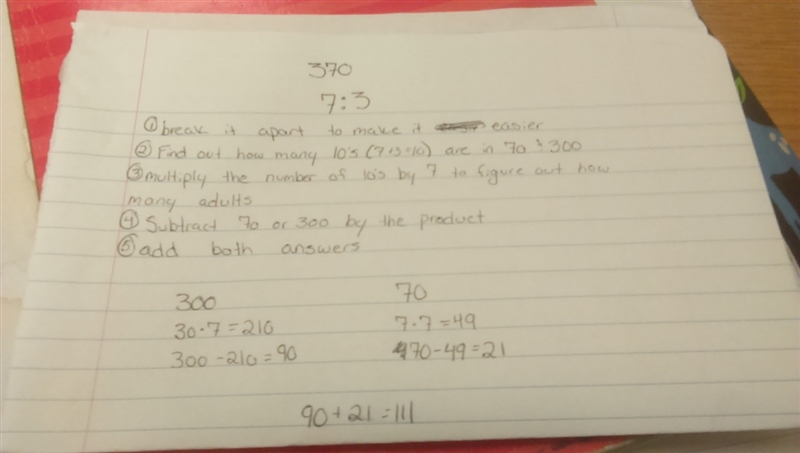 370
7:3
① break it apart to make it easier
② Find out how many 10's (7+3=10) are in 70 & 300
③ multiply the number of 10's by 7 to figure out how
many adults
④ Subtract 70 or 300 by the product
⑤ add both answers
300 70
30·7=210 7·7=49
300-210=90 70-49=21
90+21=111